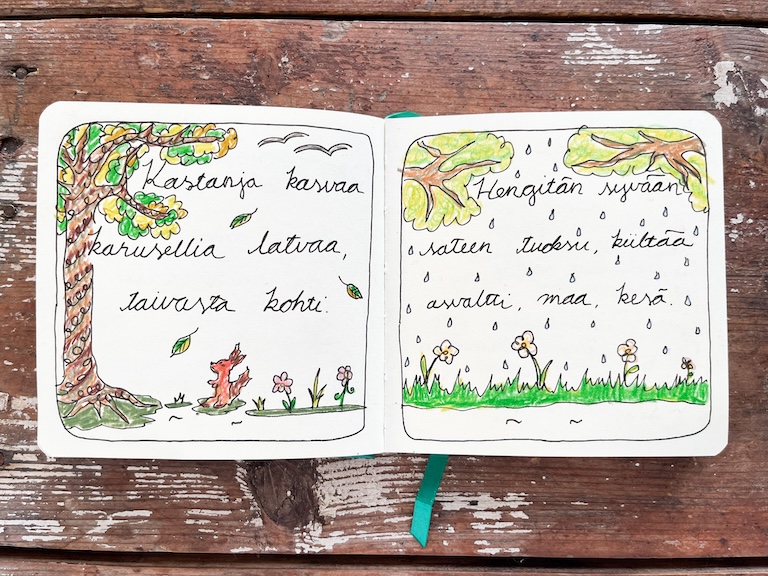 Kastanja kasvaa
karusellia latvaa,
taivasta kohti.
Hengitän syvään
sateen tuoksu, kiiltää
asvaltti, maa, kesä.